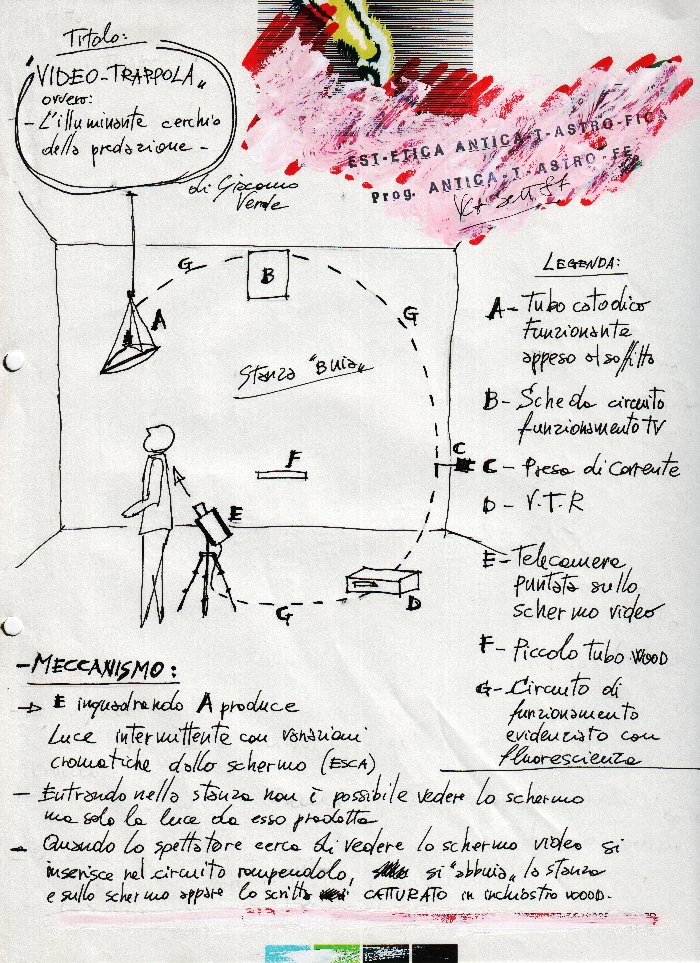 Titolo:
"VIDEO-TRAPPOLA"
ovvero:
- L'illuminante cerchio
della predazione -
di Giacomo
Verde
EST-ETICA ANTICA-T-ASTRO-FICA
Prog. ANTICA-T-ASTRO-FE
G
B
A
G
Stanza "Buia"
C
F
E
D
G
LEGENDA:
A - Tubo catodico
Funzionante
appeso al soffitto
B - Scheda circuito
funzionamento tv
C - Presa di corrente
D - V.T.R
E - Telecamera
puntata sullo
schermo video
F - Piccolo tubo WOOD
G - Circuito di
funzionamento
evidenziato con
fluorescienza
- MECCANISMO:
→ E inquadrando A produce
Luce intermittente con variazioni
cromatiche dallo schermo (ESCA)
- Entrando nella stanza non è possibile vedere lo schermo
ma solo la luce da esso prodotta
- Quando lo spettatore cerca di vedere lo schermo video si
inserisce nel circuito rompendolo, si "abbuia" la stanza
e sullo schermo appare la scritta CATTURATO in inchiostro WOOD.